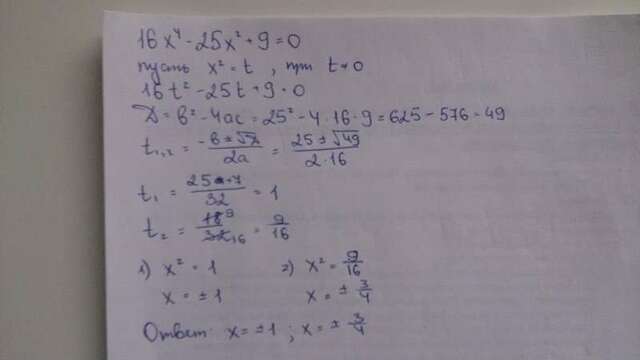 16x⁴ - 25x² + 9 = 0
пусть x² = t , при t ≠ 0
16t² - 25t + 9 = 0
D = b² - 4ac = 25² - 4·16·9 = 625 - 576 = 49
t₁,₂ = (-b ± √D)/(2a) = (25 ± √49)/(2·16)
t₁ = (25 + 7)/32 = 1
t₂ = 18 9/32 16 = 9/16
1) x² = 1 2) x² = 9/16
x = ± 1 x = ± 3/4
Ответ: x = ± 1 ; x = ± 3/4